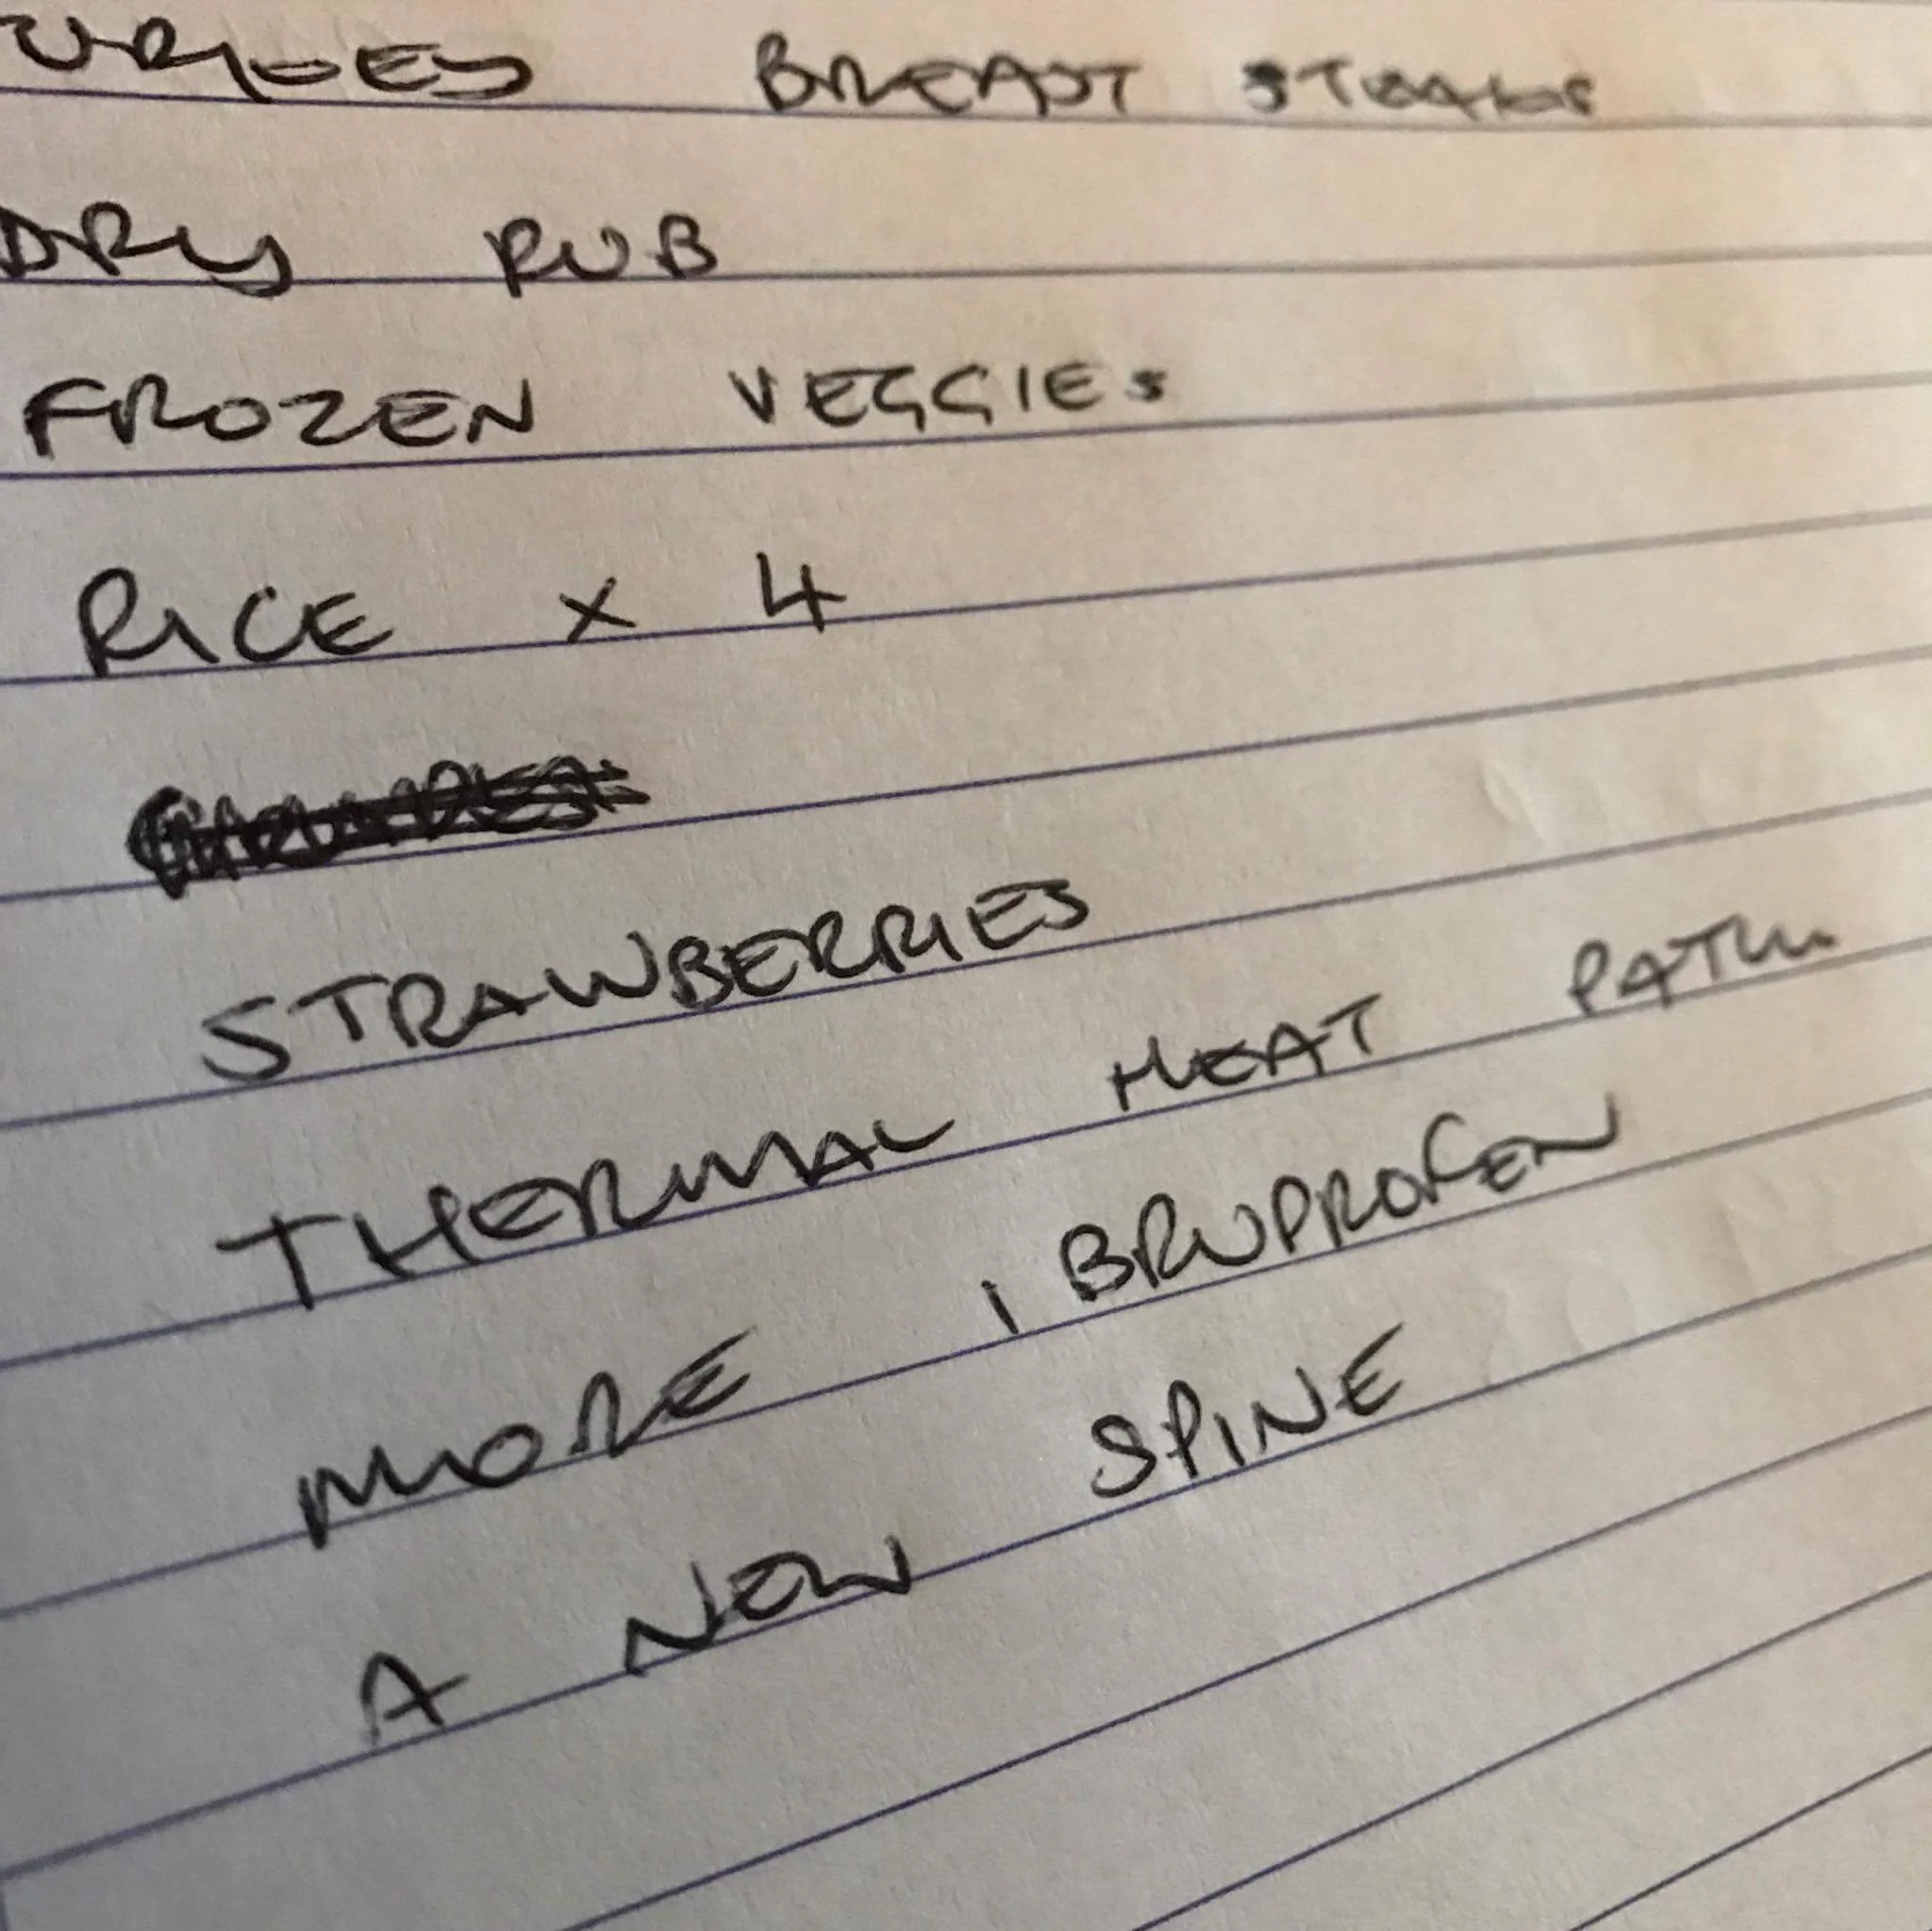 BREAST STEAKS
DRY RUB
FROZEN VEGGIES
RICE x 4
STRAWBERRIES
THERMAL HEAT
MORE iBRUPROFEN
A NEW SPINE